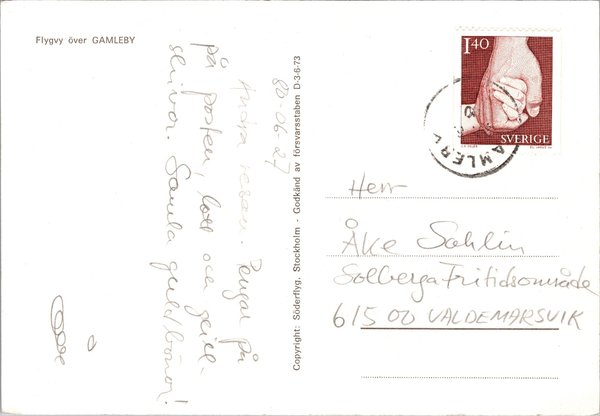 Flygvy över GAMLEBY
80-06-27
Andra resan. Pengar på
på posten, loss och
skrivor. Samla guldbönor!
Copyright: Söderflyg, Stockholm - Godkänd av försvarsstaben D-3-6-73
1.40
SVERIGE
GAMLEBY
Herr
Åke Sahlin
Solberga Fritidsområde
615 00 VALDEMARSVIK